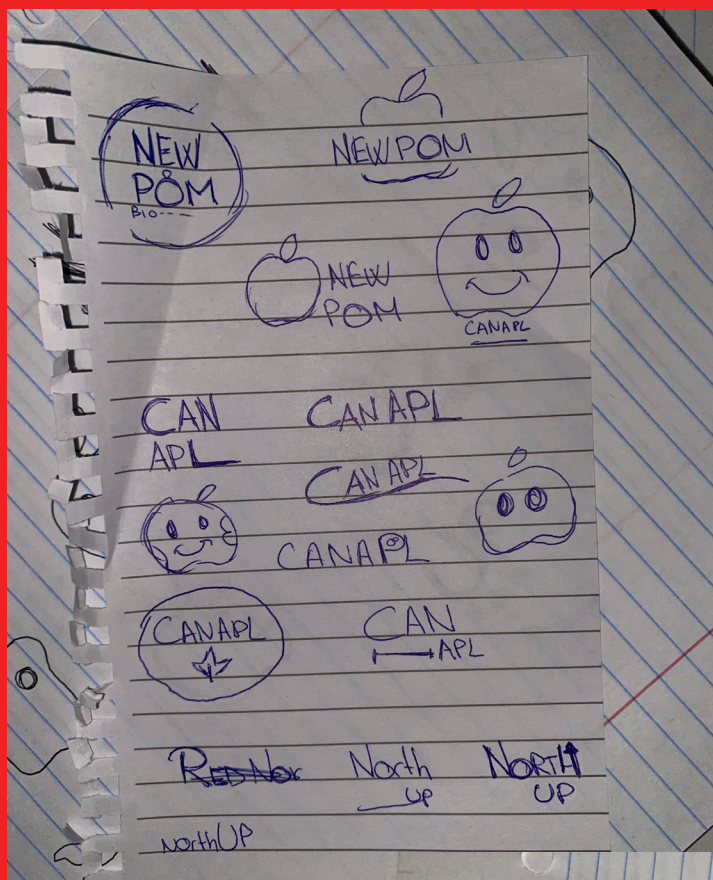 NEW
POM
BIO---
NEW POM
NEW
POM
CANAPL
CAN
APL
CANAPL
CANAPL
CANAPL
CANAPL
CAN
APL
RED NOR
North
UP
NORTH
UP
NorthUP